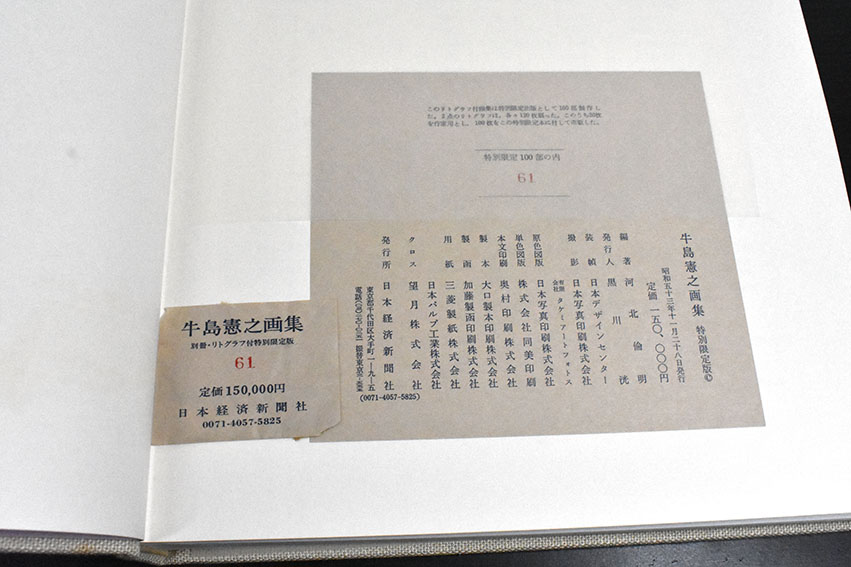 このリトグラフ付画集は特別限定出版として100部製作し
た。2点のリトグラフは、各々120枚刷った。このうち20枚
を作家用とし、100枚をこの特別限定本に付して市販した。
特別限定100部の内
61
牛島憲之画集 特別限定版©
昭和五十三年十一月二十八日発行
定価 一五〇、〇〇〇円
編著 河北倫明
発行人 黒川洸
装幀 日本デザインセンター
撮影 日本写真印刷株式会社
有限会社 タケミアートフォトス
原色図版 日本写真印刷株式会社
単色図版 株式会社同美印刷
本文印刷 奥村印刷株式会社
製本 大口製本印刷株式会社
製函 加藤製函印刷株式会社
用紙 三菱製紙株式会社
日本パルプ工業株式会社
クロス 望月株式会社
発行所 日本経済新聞社
東京都千代田区大手町一ー九ー五
(0071-4057-5825)
牛島憲之画集
別冊・リトグラフ付特別限定版
61
定価150,000円
日本経済新聞社
0071-4057-5825